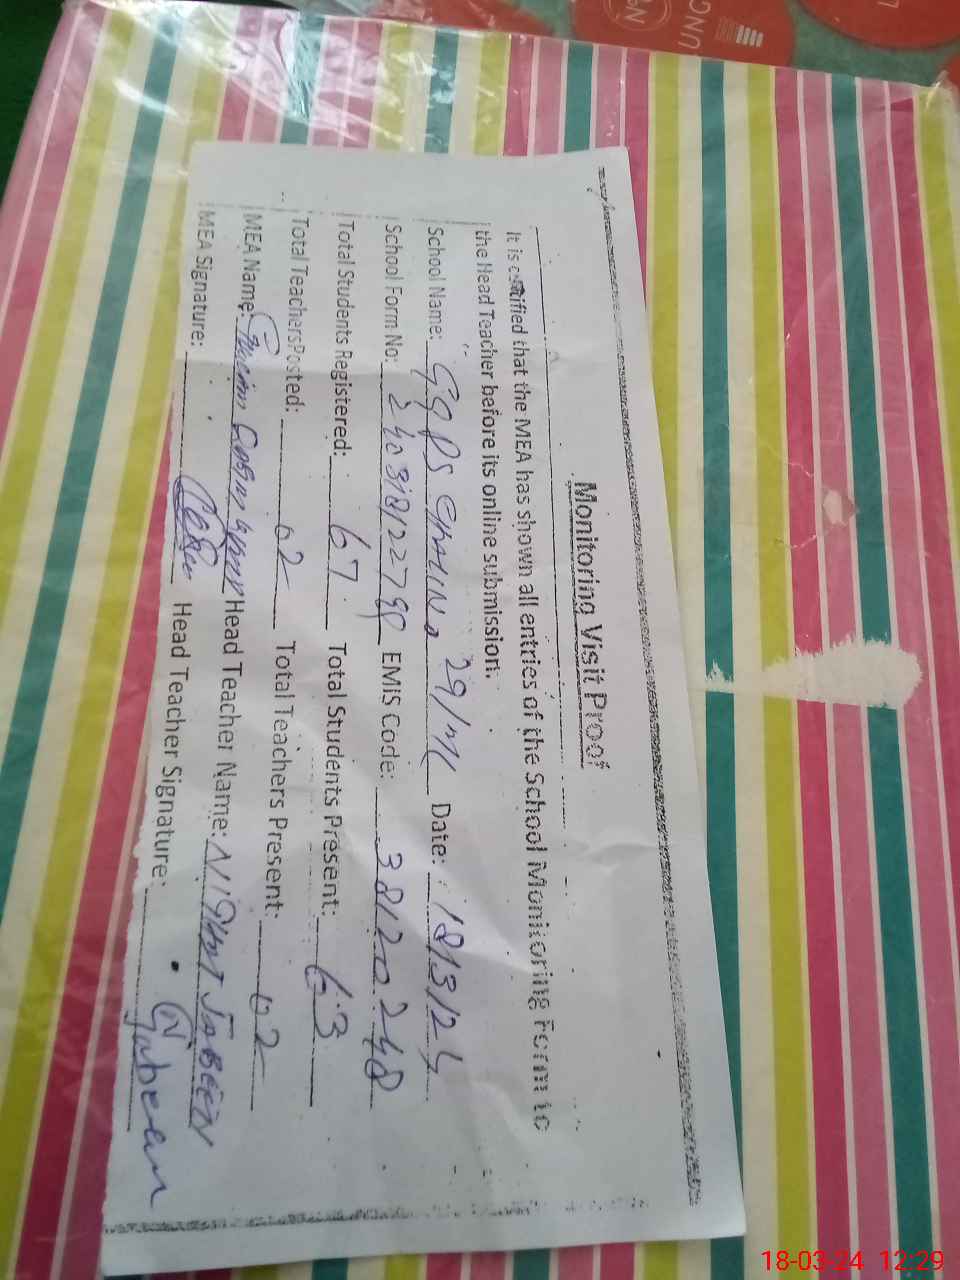 Monitoring Visit Proof
It is certified that the MEA has shown all entries of the School Monitoring Form to
the Head Teacher before its online submission.
School Name: GGPS 29/M Date: 18/3/24
School Form No: EMIS Code: 38120248
Total Students Registered: 67 Total Students Present: 63
Total Teachers Posted: 02 Total Teachers Present: 02
MEA Name: Head Teacher Name: NIGHAT JABEEN
MEA Signature: Head Teacher Signature: N Jabeen
18-03-24 12:29